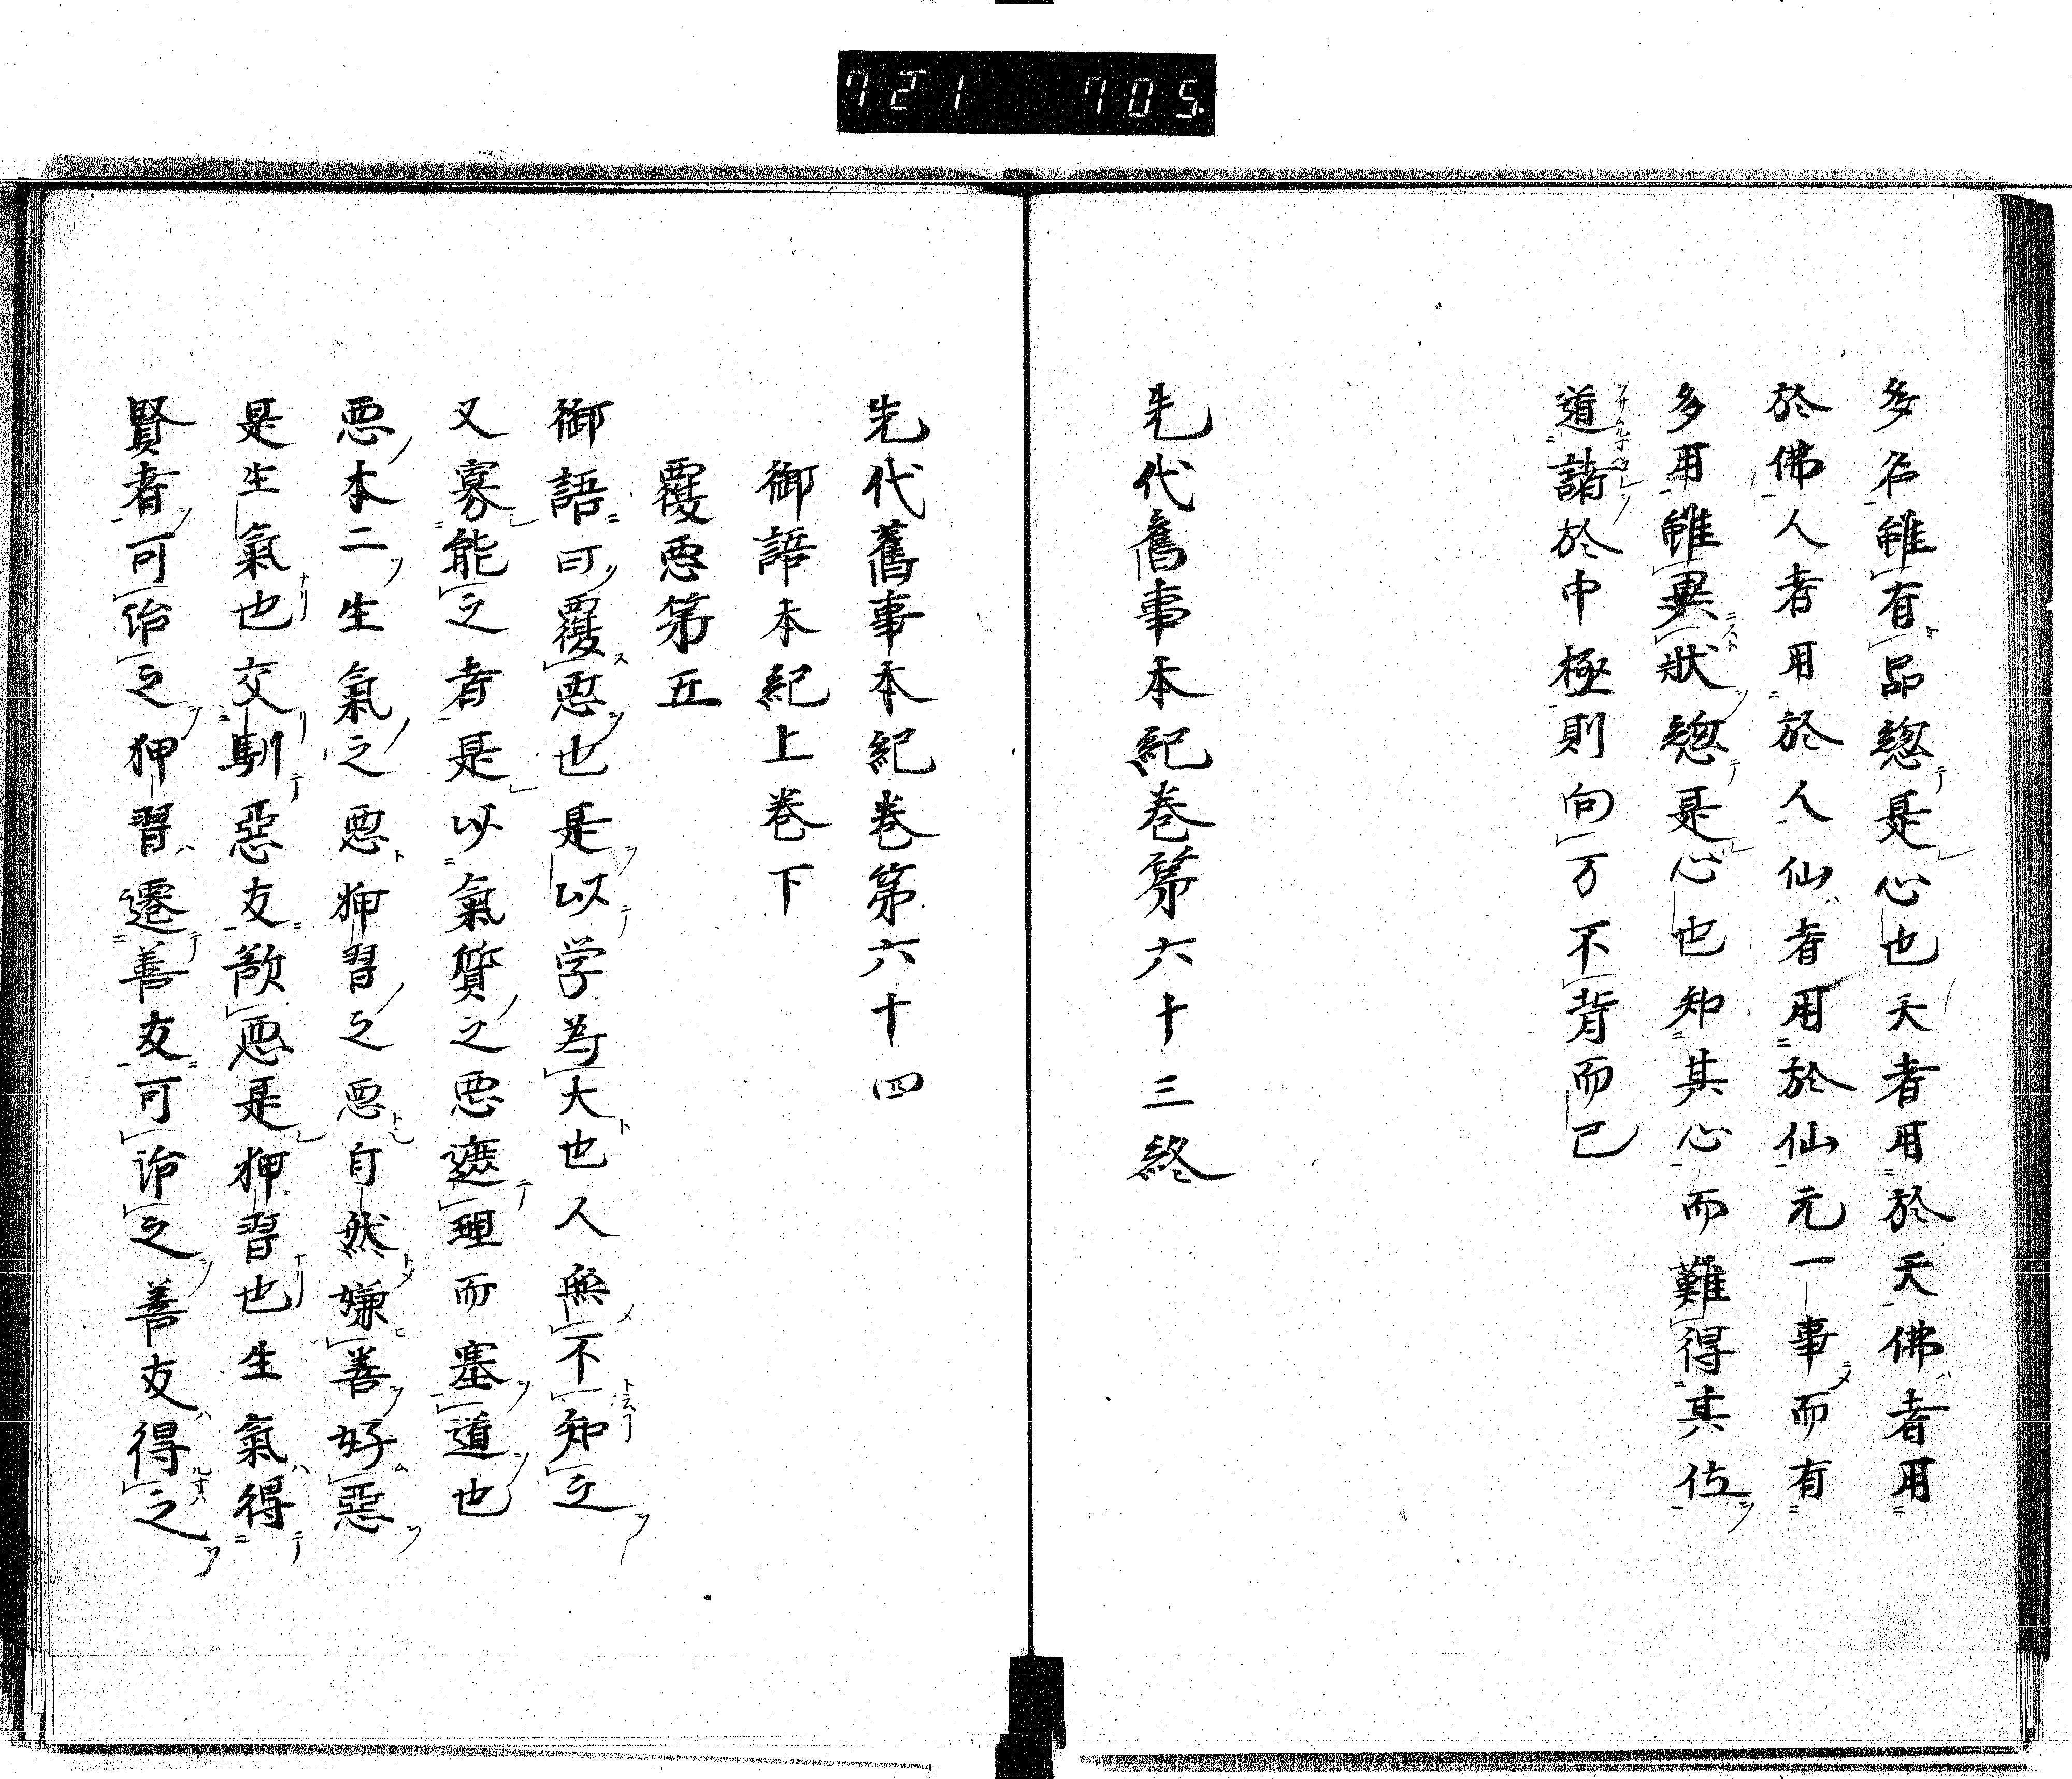 721 705.
多名雖有品緫是心也天者用於天佛者用
於佛人者用於人仙者用於仙元一事而有
多用雖異狀緫是心也知其心而難得其位
道諸於中極則向万不背而已
先代舊事本紀巻第六十三終
先代舊事本紀巻第六十四
御語本紀上巻下
覆悪第五
御語曰覆悪也是以学為大也人無不知之
又寡能之者是以氣質之悪遮理而塞道也
悪本二生氣之悪狎習之悪自然嫌善好惡
是生氣也交馴惡友歆悪是狎習也生氣得
賢者可治之狎習遷善友可治之善友得之